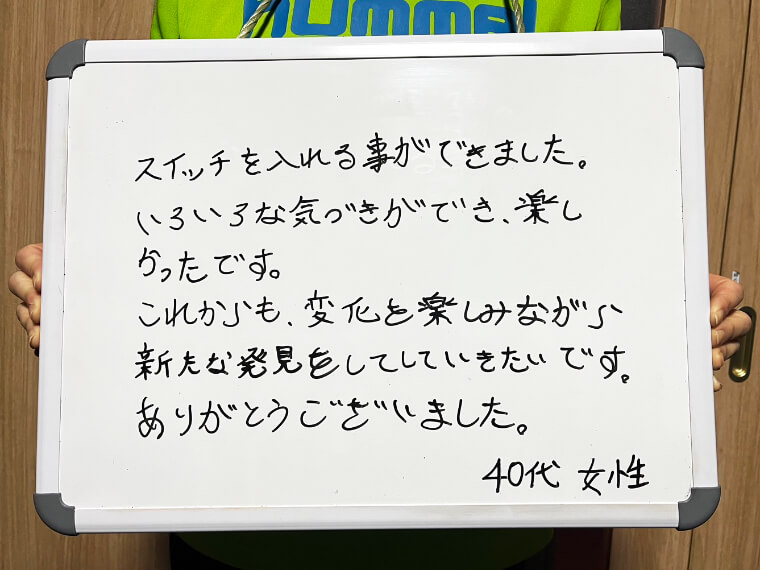 hummel
スイッチを入れる事ができました。
いろいろな気づきができ、楽し
かったです。
これからも、変化を楽しみながら
新たな発見をしてしていきたいです。
ありがとうございました。
40代 女性